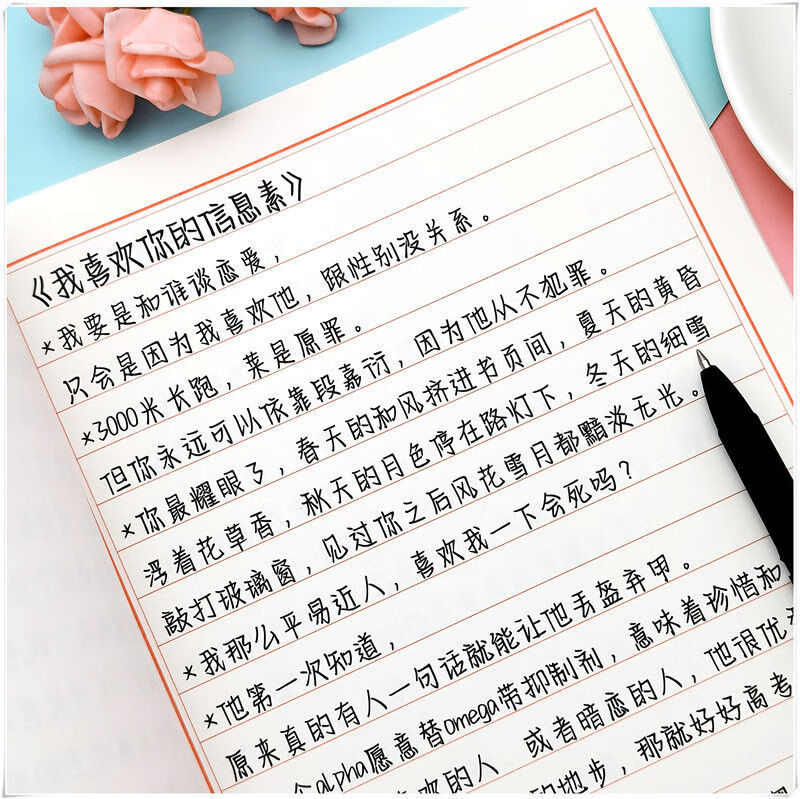 《我喜欢你的信息素》
*我要是和谁谈恋爱，
只会是因为我喜欢他，跟性别没关系。
*3000米长跑，菜是原罪。
但你永远可以依靠段嘉衍，因为他从不犯罪。
*你最耀眼了，春天的和风挤进书页间，夏天的黄昏
浮着花草香，秋天的月色停在路灯下，冬天的细雪
敲打玻璃窗，见过你之后风花雪月都黯淡无光。
*我那么平易近人，喜欢我一下会死吗？
*他第一次知道，
原来真的有人一句话就能让他丢盔弃甲。
个alpha愿意替omega带抑制剂，意味着珍惜和
喜欢的人 或者暗恋的人，他很优
的地步，那就好好高考